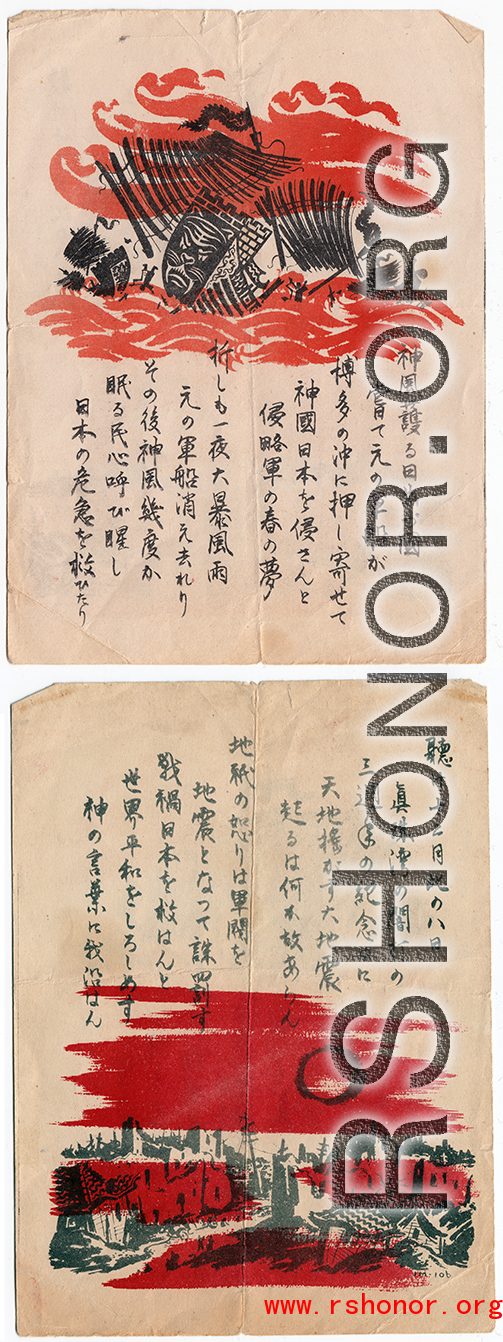 神風護る日
嘗て元の軍船が
博多の沖に押し寄せて
神國日本を侵さんと
侵略軍の春の夢
折しも一夜大暴風雨
元の軍船消え去れり
その後神風幾度か
眠る民心呼び醒し
日本の危急を救ひたり
聽 十二月 の八日
眞珠湾の闇 の
三週年の紀念日に
天地搖がす大地震
起るは何故あらん
地祇の怒りは軍閥を
地震となつて誅罰す
戰禍日本を救はんと
世界平和をしろしめす
神の言葉に我 はん
m-106
RSHONOR.ORG
www.rshonor.org